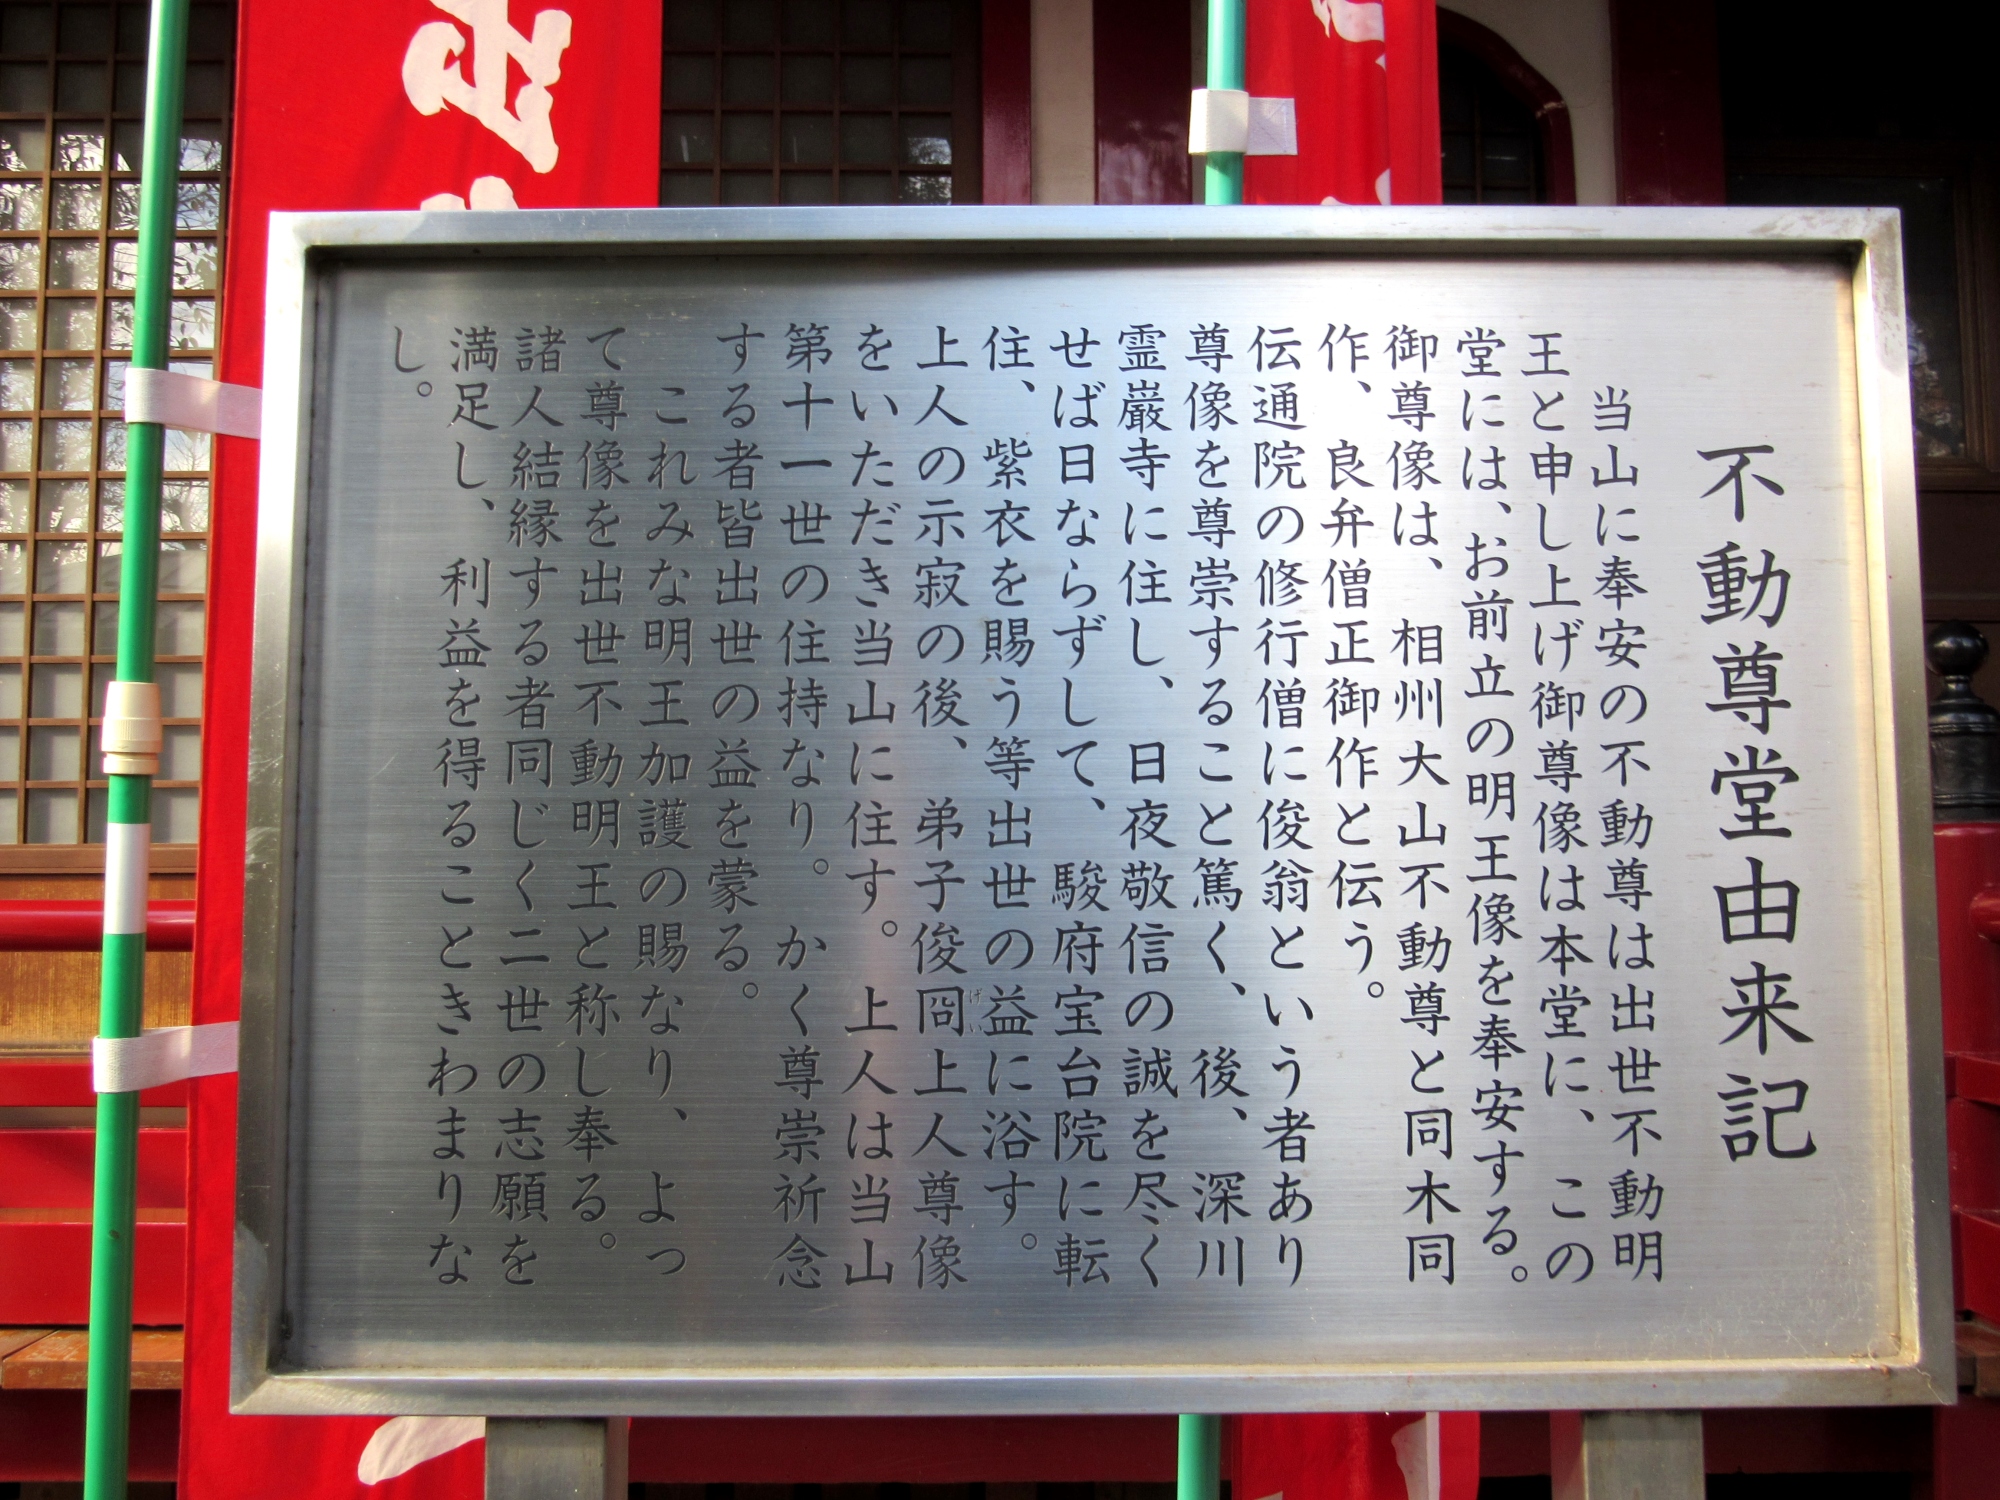 不動尊堂由来記
当山に奉安の不動尊は出世不動明
王と申し上げ御尊像は本堂に、この
堂には、お前立の明王像を奉安する。
御尊像は、相州大山不動尊と同木同
作、良弁僧正御作と伝う。
伝通院の修行僧に俊翁という者あり
尊像を尊崇すること篤く、後、深川
霊巌寺に住し、日夜敬信の誠を尽く
せば日ならずして、駿府宝台院に転
住、紫衣を賜う等出世の益に浴す。
上人の示寂の後、弟子俊冏上人尊像
げい
をいただき当山に住す。上人は当山
第十一世の住持なり。かく尊崇祈念
する者皆出世の益を蒙る。
これみな明王加護の賜なり、よっ
て尊像を出世不動明王と称し奉る。
諸人結縁する者同じく二世の志願を
満足し、利益を得ることきわまりな
し。